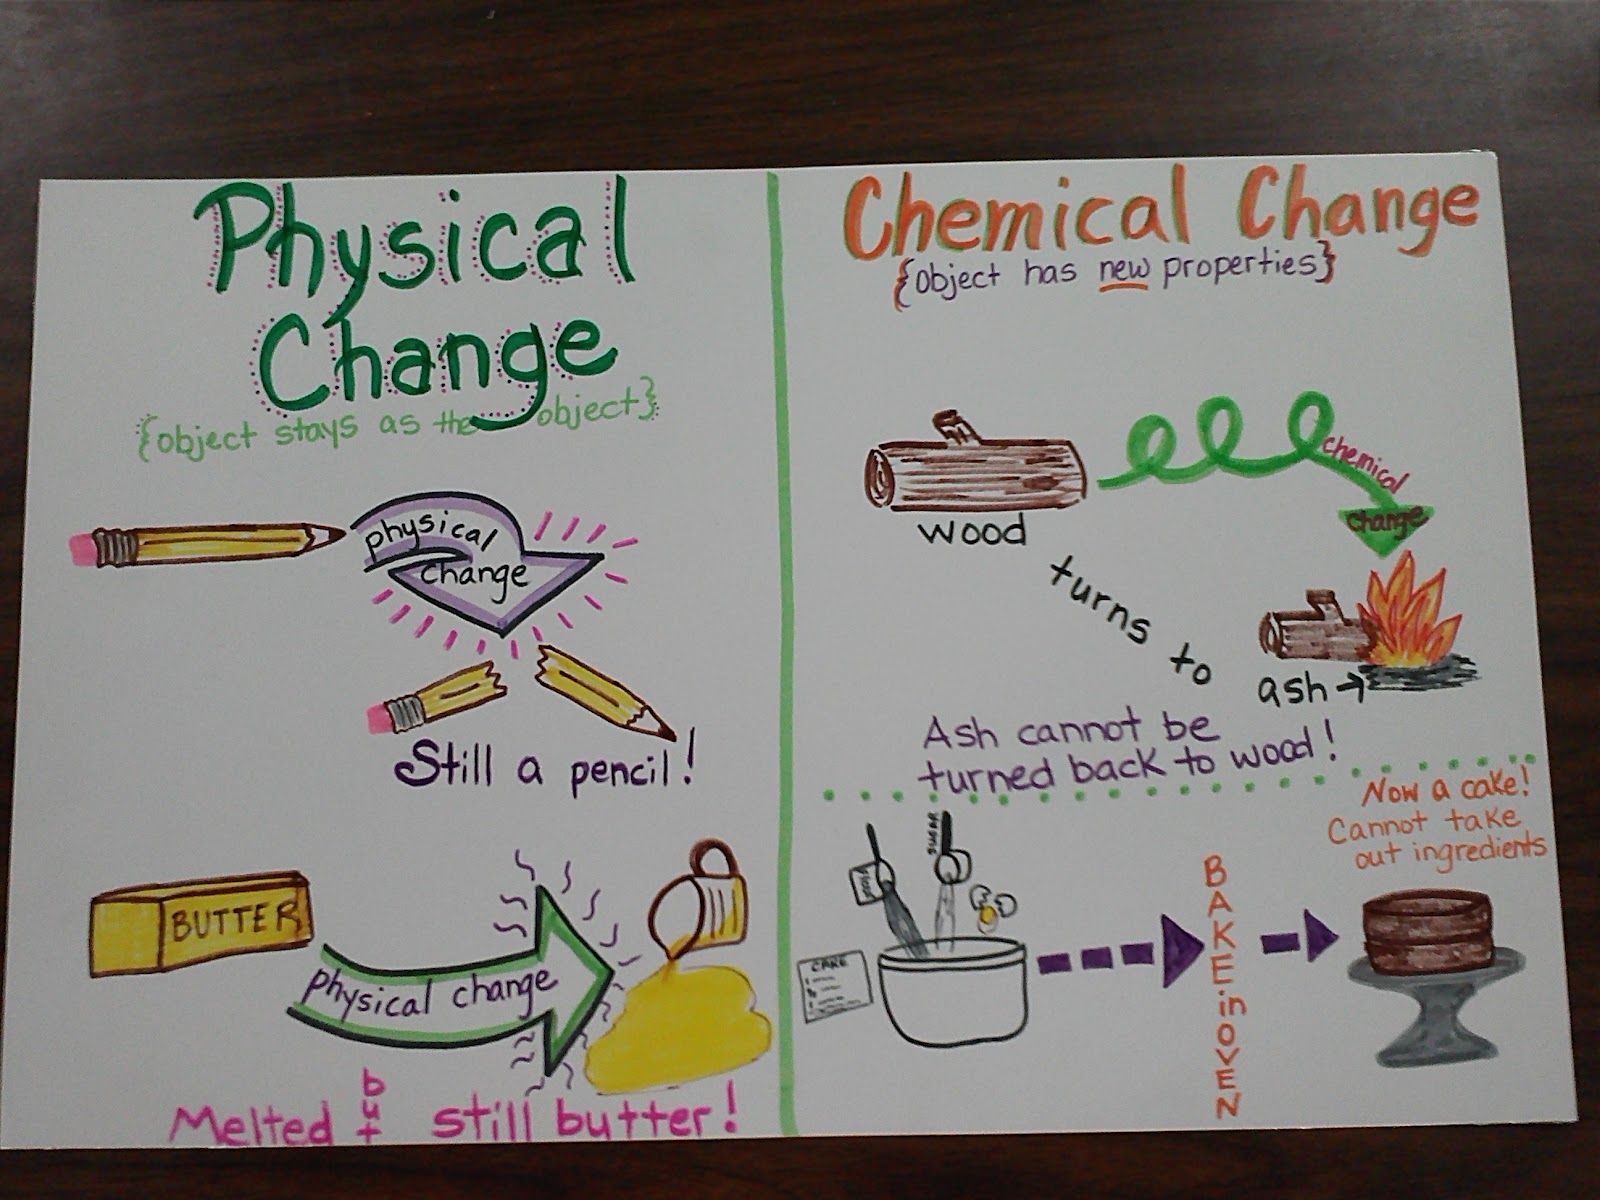 Physical
Change
{object stays as the object}
physical
change
Still a pencil!
BUTTER
physical change
Melted but still butter!
Chemical Change
{object has new properties}
chemical
change
wood
turns to
ash
Ash cannot be
turned back to wood!
Now a cake!
Cannot take
out ingredients
SUGAR
CAKE
BAKE in OVEN